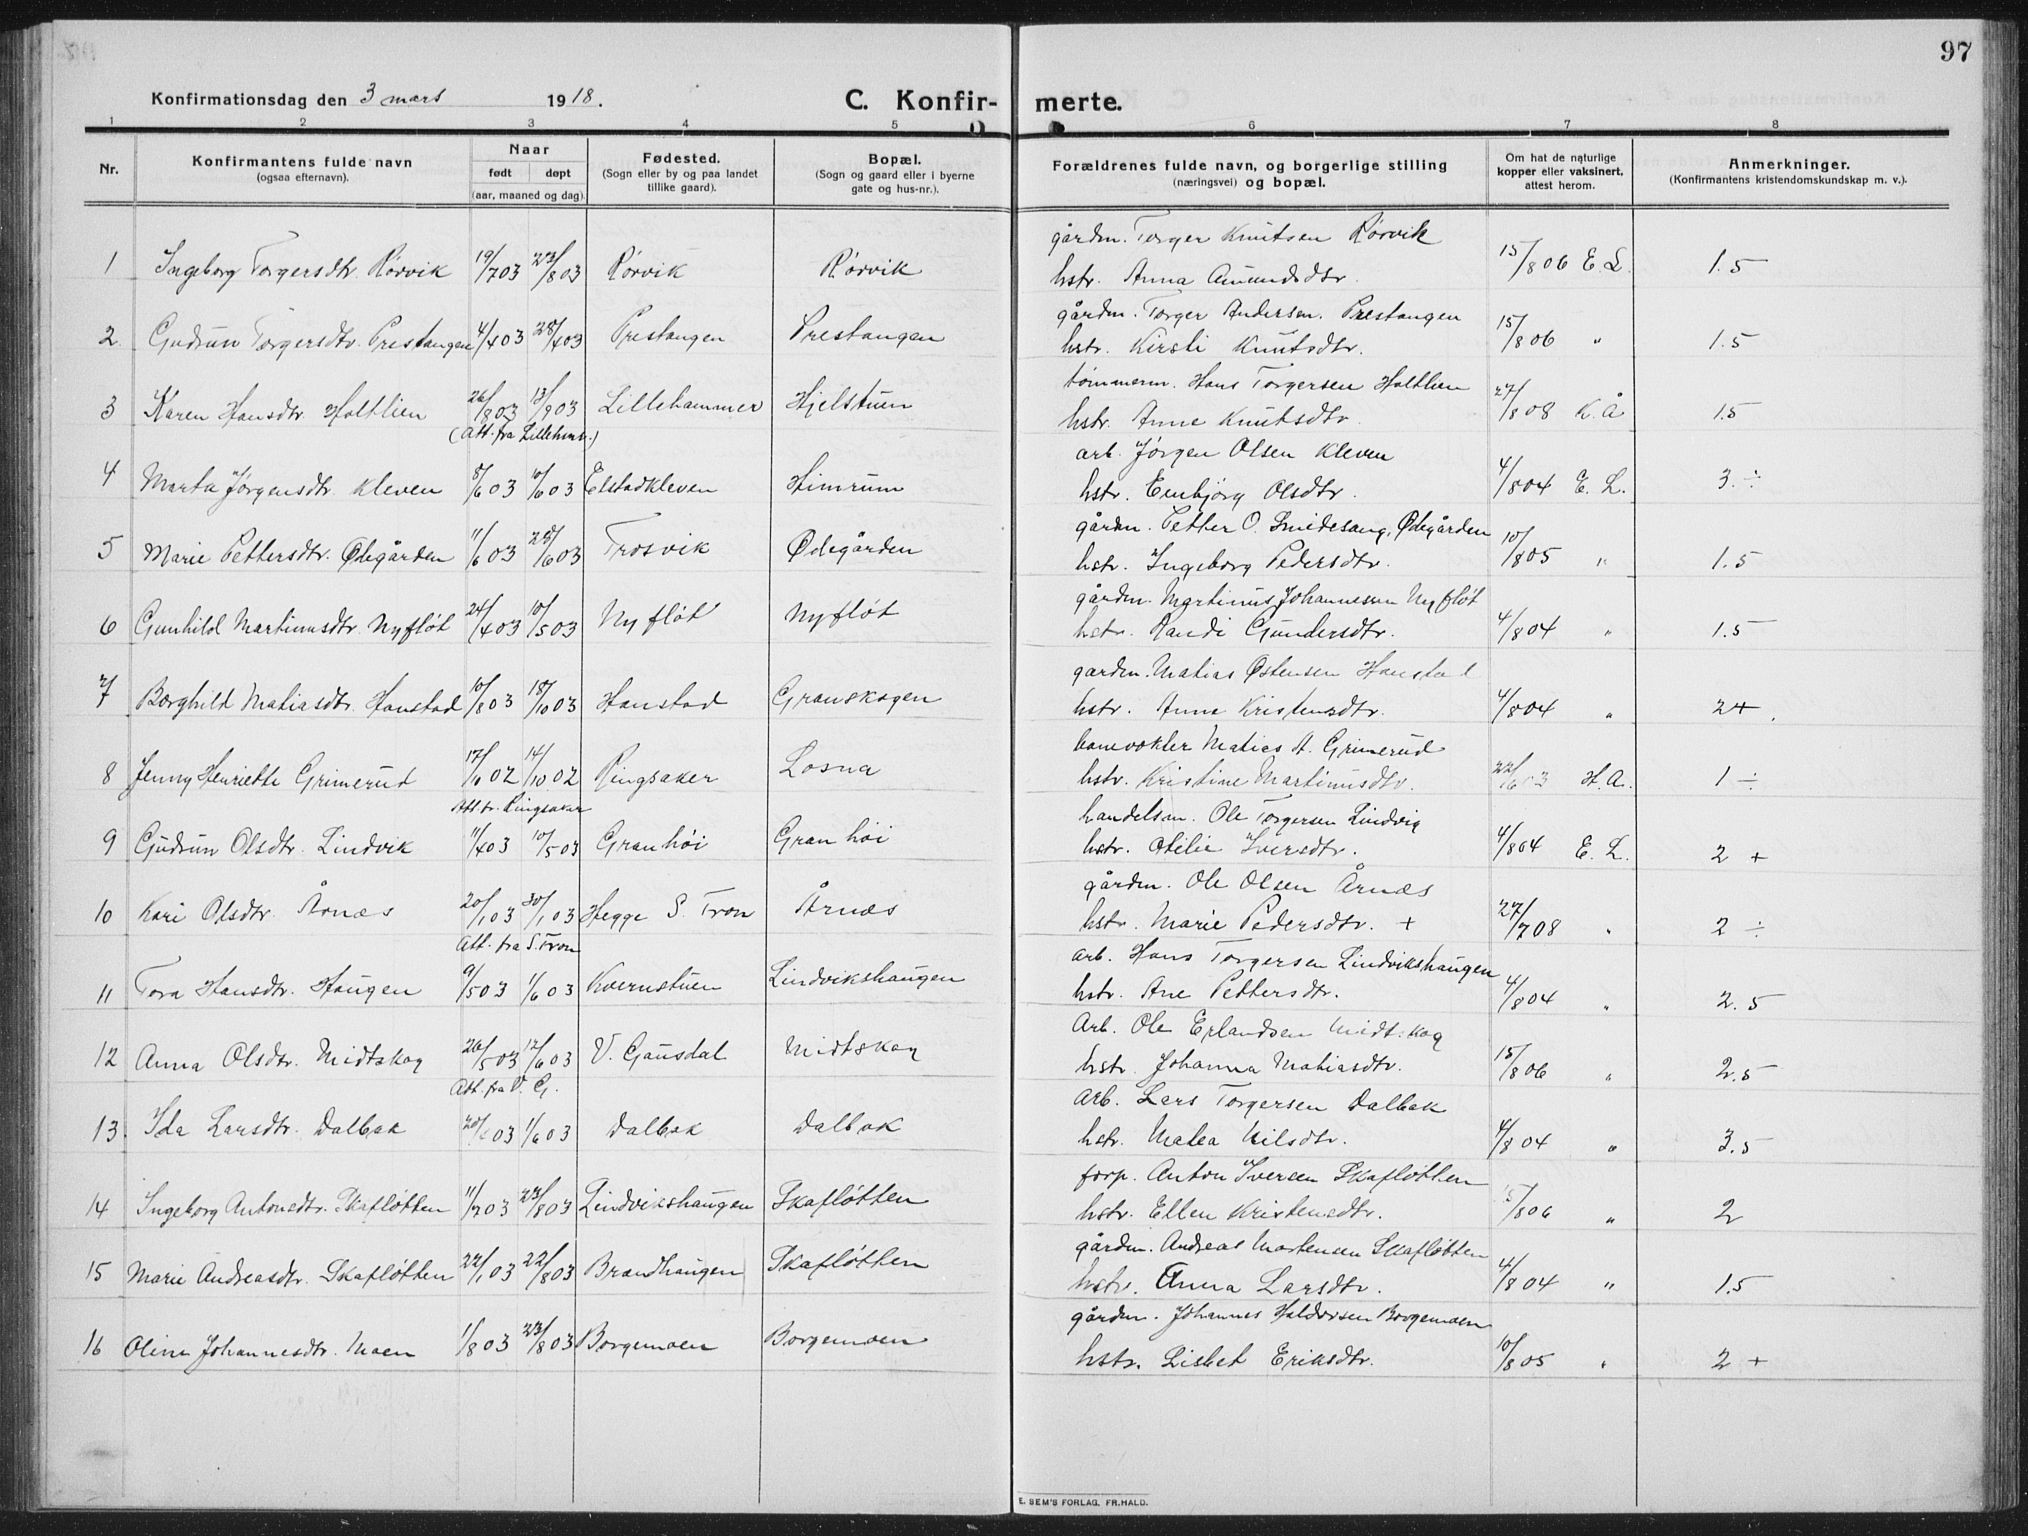 97
Konfirmationsdag den 3 mars 1918. C. Konfirmerte.
1 2 3 4 5 6 7 8
Nr. Konfirmantens fulde navn (ogsaa efternavn). Naar født døpt (aar, maaned og dag). Fødested. (Sogn eller by og paa landet tillike gaard). Bopæl. (Sogn og gaard eller i byerne gate og hus-nr.). Forældrenes fulde navn, og borgerlige stilling (næringsvei) og bopæl. Om hat de naturlige kopper eller vaksinert, attest herom. Anmerkninger. (Konfirmantens kristendomskundskap m. v.).
gårdm. Torger Knutsen Rørvik
1 Ingeborg Torgersdtr. Rørvik 19/7 03 23/8 03 Rørvik Rørvik hstr. Anna Amundsdtr. 15/8 06 E. L. 1.5
gårdm. Torger Andersen. Prestangen
2 Gudrun Torgersdtr. Prestangen 4/4 03 28/4 03 Prestangen Prestangen hstr. Kirsti Knutsdtr. 15/8 06 " 1.5
tømmerm. Hans Torgersen Holtlien
3 Karen Hansdtr. Holtlien 26/8 03 13/9 03 Lillehammer Hjelstuen hstr. Anne Knutsdtr. 27/8 08 K. Å 1.5
(Att. fra Lilleham.)
arb. Jørgen Olsen Kleven
4 Marta Jørgensdtr. Kleven 8/6 03 10/6 03 Elstadkleven Himrum hstr. Embjørg Olsdtr. 4/8 04 E. L. 3. ÷
gårdm. Petter O. Smidesang, Ødegården
5 Marie Pettersdtr. Ødegården 11/6 03 28/6 03 Trosvik Ødegården hstr. Ingeborg Pedersdtr. 10/8 05 " 1.5
gårdm. Martinus Johannessen Nyfløt
6 Gunhild Martinusdtr. Nyfløt 24/4 03 10/5 03 Nyfløt Nyfløt hstr. Randi Gundersdtr. 4/8 04 " 1.5
gardm. Matias Østensen Hanstad
7 Borghild Matiasdtr. Hanstad 10/8 03 18/10 03 Hanstad Granskogen hstr. Anne Kristensdtr. 4/8 04 " 2 +
banevokter Matias H. Grimerud
8 Jenny Henriette Grimerud 17/6 02 14/10 02 Ringsaker Losna hstr. Kristine Martinusdtr. 22/6 03 H. A. 1 ÷
Att. fr. Ringsaker
handelsm. Ole Torgersen Lindvig
9 Gudrun Olsdtr. Lindvik 11/4 03 10/5 03 Granhöi Granhöi hstr. Otilie Iversdtr. 4/8 04 E. L. 2 +
gårdm. Ole Olsen Årnæs
10 Kari Olsdtr. Årnæs 20/1 03 30/1 03 Hegge S. Fron Årnæs hstr. Marie Pedersdtr. + 27/7 08 " 2 ÷
Att. fra S. Fron
arb. Hans Torgersen Lindvikshaugen
11 Tora Hansdtr. Haugen 9/5 03 1/6 03 Kvernstuen Lindvikshaugen hstr. Ane Pettersdtr. 4/8 04 " 2.5
Arb. Ole Erlandsen Midtskog
12 Anna Olsdtr. Midtskog 26/5 03 12/6 03 V. Gausdal Midtskog hstr. Johanna Matiasdtr. 15/8 06 " 2.5
Att. fra V. G.
Arb. Lars Torgersen Dalbak
13 Ida Larsdtr. Dalbak 1/6 03 Dalbak Dalbak hstr. Matea Nilsdtr. 4/8 04 " 3.5
forp. Anton Iversen Skafløtten
14 Ingeborg Antonsdtr. Skafløtten 11/7 03 23/8 03 Lindvikshaugen Skafløtten hstr. Ellen Kristensdtr. 15/8 06 " 2
gårdm. Andreas Mortensen Skafløtten
15 Marie Andreasdtr. Skafløtten 22/8 03 Brandhaugen Skafløtten hstr. Anna Larsdtr. 4/8 04 " 1.5
gårdm. Johannes Haldorsen Borgemoen
16 Oline Johannesdtr. Moen 1/8 03 23/8 03 Borgemoen Borgemoen hstr. Lisbet Eriksdtr. 10/8 05 " 2 +
E. SEM'S FORLAG, FR.HALD.